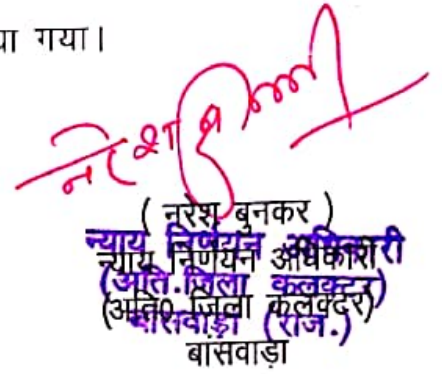 या गया।
नरेश
( नरेश बुनकर )
न्याय निर्णयन अधिकारी
न्याय निर्णयन अधिकारी
(अति.जिला कलक्टर)
(अति० जिला कलक्टर)
बांसवाड़ा (राज.)
बांसवाड़ा